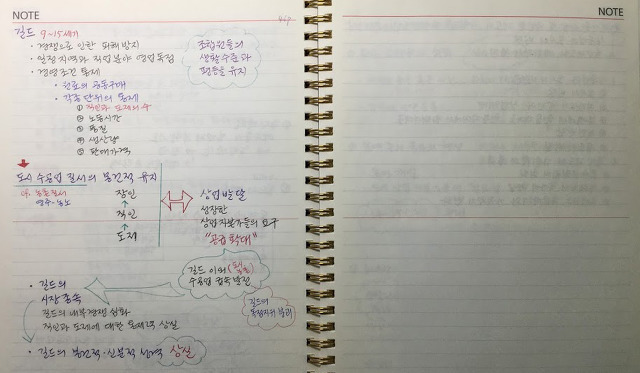 NOTE
NOTE
길드 9-15세기
· 경쟁으로 인한 피해 방지
· 일정 지역과 직업 분야 영업 독점
· 경영 조건 통제
· 원료의 공동구매
· 각종 단위의 통제
① 직인과 도제의 수
② 노동시간
③ 품질
④ 생산량
⑤ 판매가격
조합원들의
생활수준과
평등을 유지
도시 수공업 질서의 봉건적 유지
영주-농노
장인
↑
직인
↑
도제
상업 발달
성장한
상업 자본가들의 요구
"공급 확대"
길드 이외
수공업 급속 발전
길드의
독점지위
· 길드의
시장 종속
길드의 내부경쟁 심화
직인과 도제에 대한 통제력 상실
· 길드의 봉건적·신분적 성격 상실